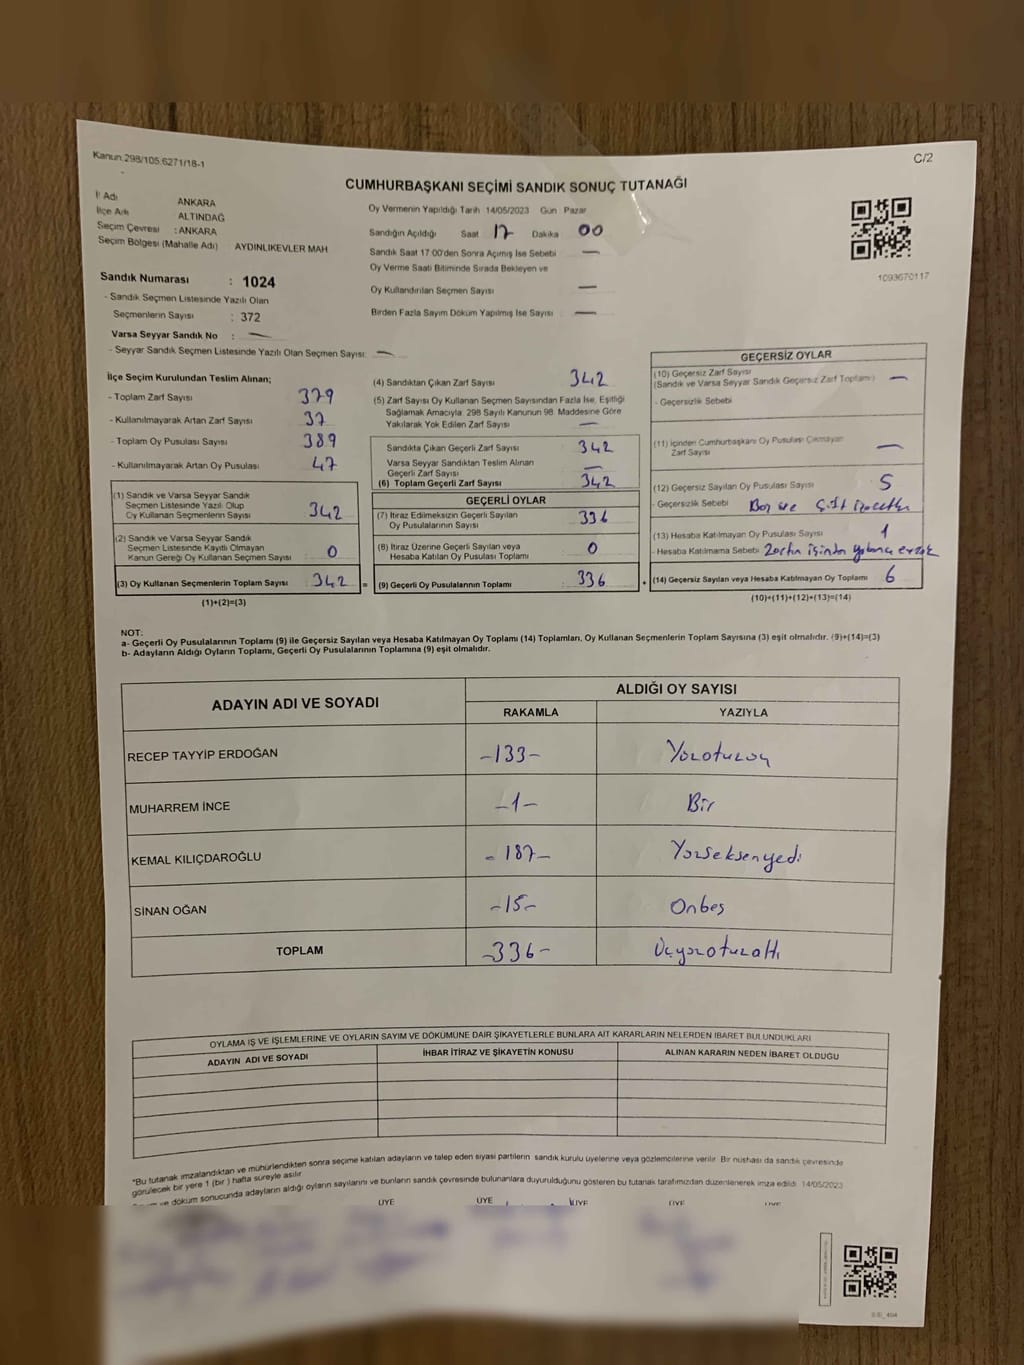 Kanun:298/105.6271/18-1
C/2
CUMHURBAŞKANI SEÇİMİ SANDIK SONUÇ TUTANAĞI
İl Adı ANKARA
İlçe Adı ALTINDAĞ
Seçim Çevresi : ANKARA
Seçim Bölgesi (Mahalle Adı) AYDINLIKEVLER MAH
Oy Vermenin Yapıldığı Tarih 14/05/2023 Gün Pazar
Sandığın Açıldığı Saat 17 Dakika 00
Sandık Saat 17:00'den Sonra Açımış İse Sebebi —
Oy Verme Saati Bitiminde Sırada Bekleyen ve
Oy Kullandırılan Seçmen Sayısı —
Birden Fazla Sayım Döküm Yapılmış İse Sayısı —
1093670117
Sandık Numarası : 1024
- Sandık Seçmen Listesinde Yazılı Olan
Seçmenlerin Sayısı : 372
Varsa Seyyar Sandık No : —
- Seyyar Sandık Seçmen Listesinde Yazılı Olan Seçmen Sayısı: —
İlçe Seçim Kurulundan Teslim Alınan;
- Toplam Zarf Sayısı 379
- Kullanılmayarak Artan Zarf Sayısı 37
- Toplam Oy Pusulası Sayısı 389
- Kullanılmayarak Artan Oy Pusulası 47
(1) Sandık ve Varsa Seyyar Sandık
Seçmen Listesinde Yazılı Olup
Oy Kullanan Seçmenlerin Sayısı 342
(2) Sandık ve Varsa Seyyar Sandık
Seçmen Listesinde Kayıtlı Olmayan
Kanun Gereği Oy Kullanan Seçmen Sayısı 0
(3) Oy Kullanan Seçmenlerin Toplam Sayısı 342 =
(1)+(2)=(3)
(4) Sandıktan Çıkan Zarf Sayısı 342
(5) Zarf Sayısı Oy Kullanan Seçmen Sayısından Fazla İse, Eşitliği
Sağlamak Amacıyla 298 Sayılı Kanunun 98. Maddesine Göre
Yakılarak Yok Edilen Zarf Sayısı —
Sandıkta Çıkan Geçerli Zarf Sayısı 342
Varsa Seyyar Sandıktan Teslim Alınan
Geçerli Zarf Sayısı —
(6) Toplam Geçerli Zarf Sayısı 342
GEÇERLİ OYLAR
(7) İtiraz Edilmeksizin Geçerli Sayılan
Oy Pusulalarının Sayısı 336
(8) İtiraz Üzerine Geçerli Sayılan veya
Hesaba Katılan Oy Pusulası Toplamı 0
(9) Geçerli Oy Pusulalarının Toplamı : 336 +
GEÇERSİZ OYLAR
(10) Geçersiz Zarf Sayısı
(Sandık ve Varsa Seyyar Sandık Geçersiz Zarf Toplamı) —
- Geçersizlik Sebebi
(11) İçinden Cumhurbaşkanı Oy Pusulası Çıkmayan
Zarf Sayısı —
(12) Geçersiz Sayılan Oy Pusulası Sayısı 5
- Geçersizlik Sebebi Boş ve Çift
(13) Hesaba Katılmayan Oy Pusulası Sayısı 1
- Hesaba Katılmama Sebebi Zarfın içinden yabancı evrak
(14) Geçersiz Sayılan veya Hesaba Katılmayan Oy Toplamı 6
(10)+(11)+(12)+(13)=(14)
NOT:
a- Geçerli Oy Pusulalarının Toplamı (9) ile Geçersiz Sayılan veya Hesaba Katılmayan Oy Toplamı (14) Toplamları, Oy Kullanan Seçmenlerin Toplam Sayısına (3) eşit olmalıdır. (9)+(14)=(3)
b- Adayların Aldığı Oyların Toplamı, Geçerli Oy Pusulalarının Toplamına (9) eşit olmalıdır.
ADAYIN ADI VE SOYADI ALDIĞI OY SAYISI
RAKAMLA YAZIYLA
RECEP TAYYİP ERDOĞAN -133- Yüzotuzüç
MUHARREM İNCE -1- Bir
KEMAL KILIÇDAROĞLU -187- Yüzseksenyedi
SİNAN OĞAN -15- Onbeş
TOPLAM -336- Üçyüzotuzaltı
OYLAMA İŞ VE İŞLEMLERİNE VE OYLARIN SAYIM VE DÖKÜMÜNE DAİR ŞİKAYETLERLE BUNLARA AİT KARARLARIN NELERDEN İBARET BULUNDUKLARI
ADAYIN ADI VE SOYADI İHBAR İTİRAZ VE ŞİKAYETİN KONUSU ALINAN KARARIN NEDEN İBARET OLDUĞU
"Bu tutanak imzalandıktan ve mühürlendikten sonra seçime katılan adayların ve talep eden siyasi partilerin sandık kurulu üyelerine veya gözlemcilerine verilir. Bir nüshası da sandık çevresinde
görülecek bir yere 1 (bir) hafta süreyle asılır.
ve döküm sonucunda adayların aldığı oyların sayılarını ve bunların sandık çevresinde bulunanlara duyurulduğunu gösteren bu tutanak tarafımızdan düzenlenerek imza edildi. 14/05/2023
ÜYE ÜYE ÜYE ÜYE